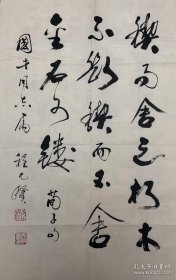 锲而舍之朽木
不折锲而不舍
金石可镂 荀子句
国中同志属